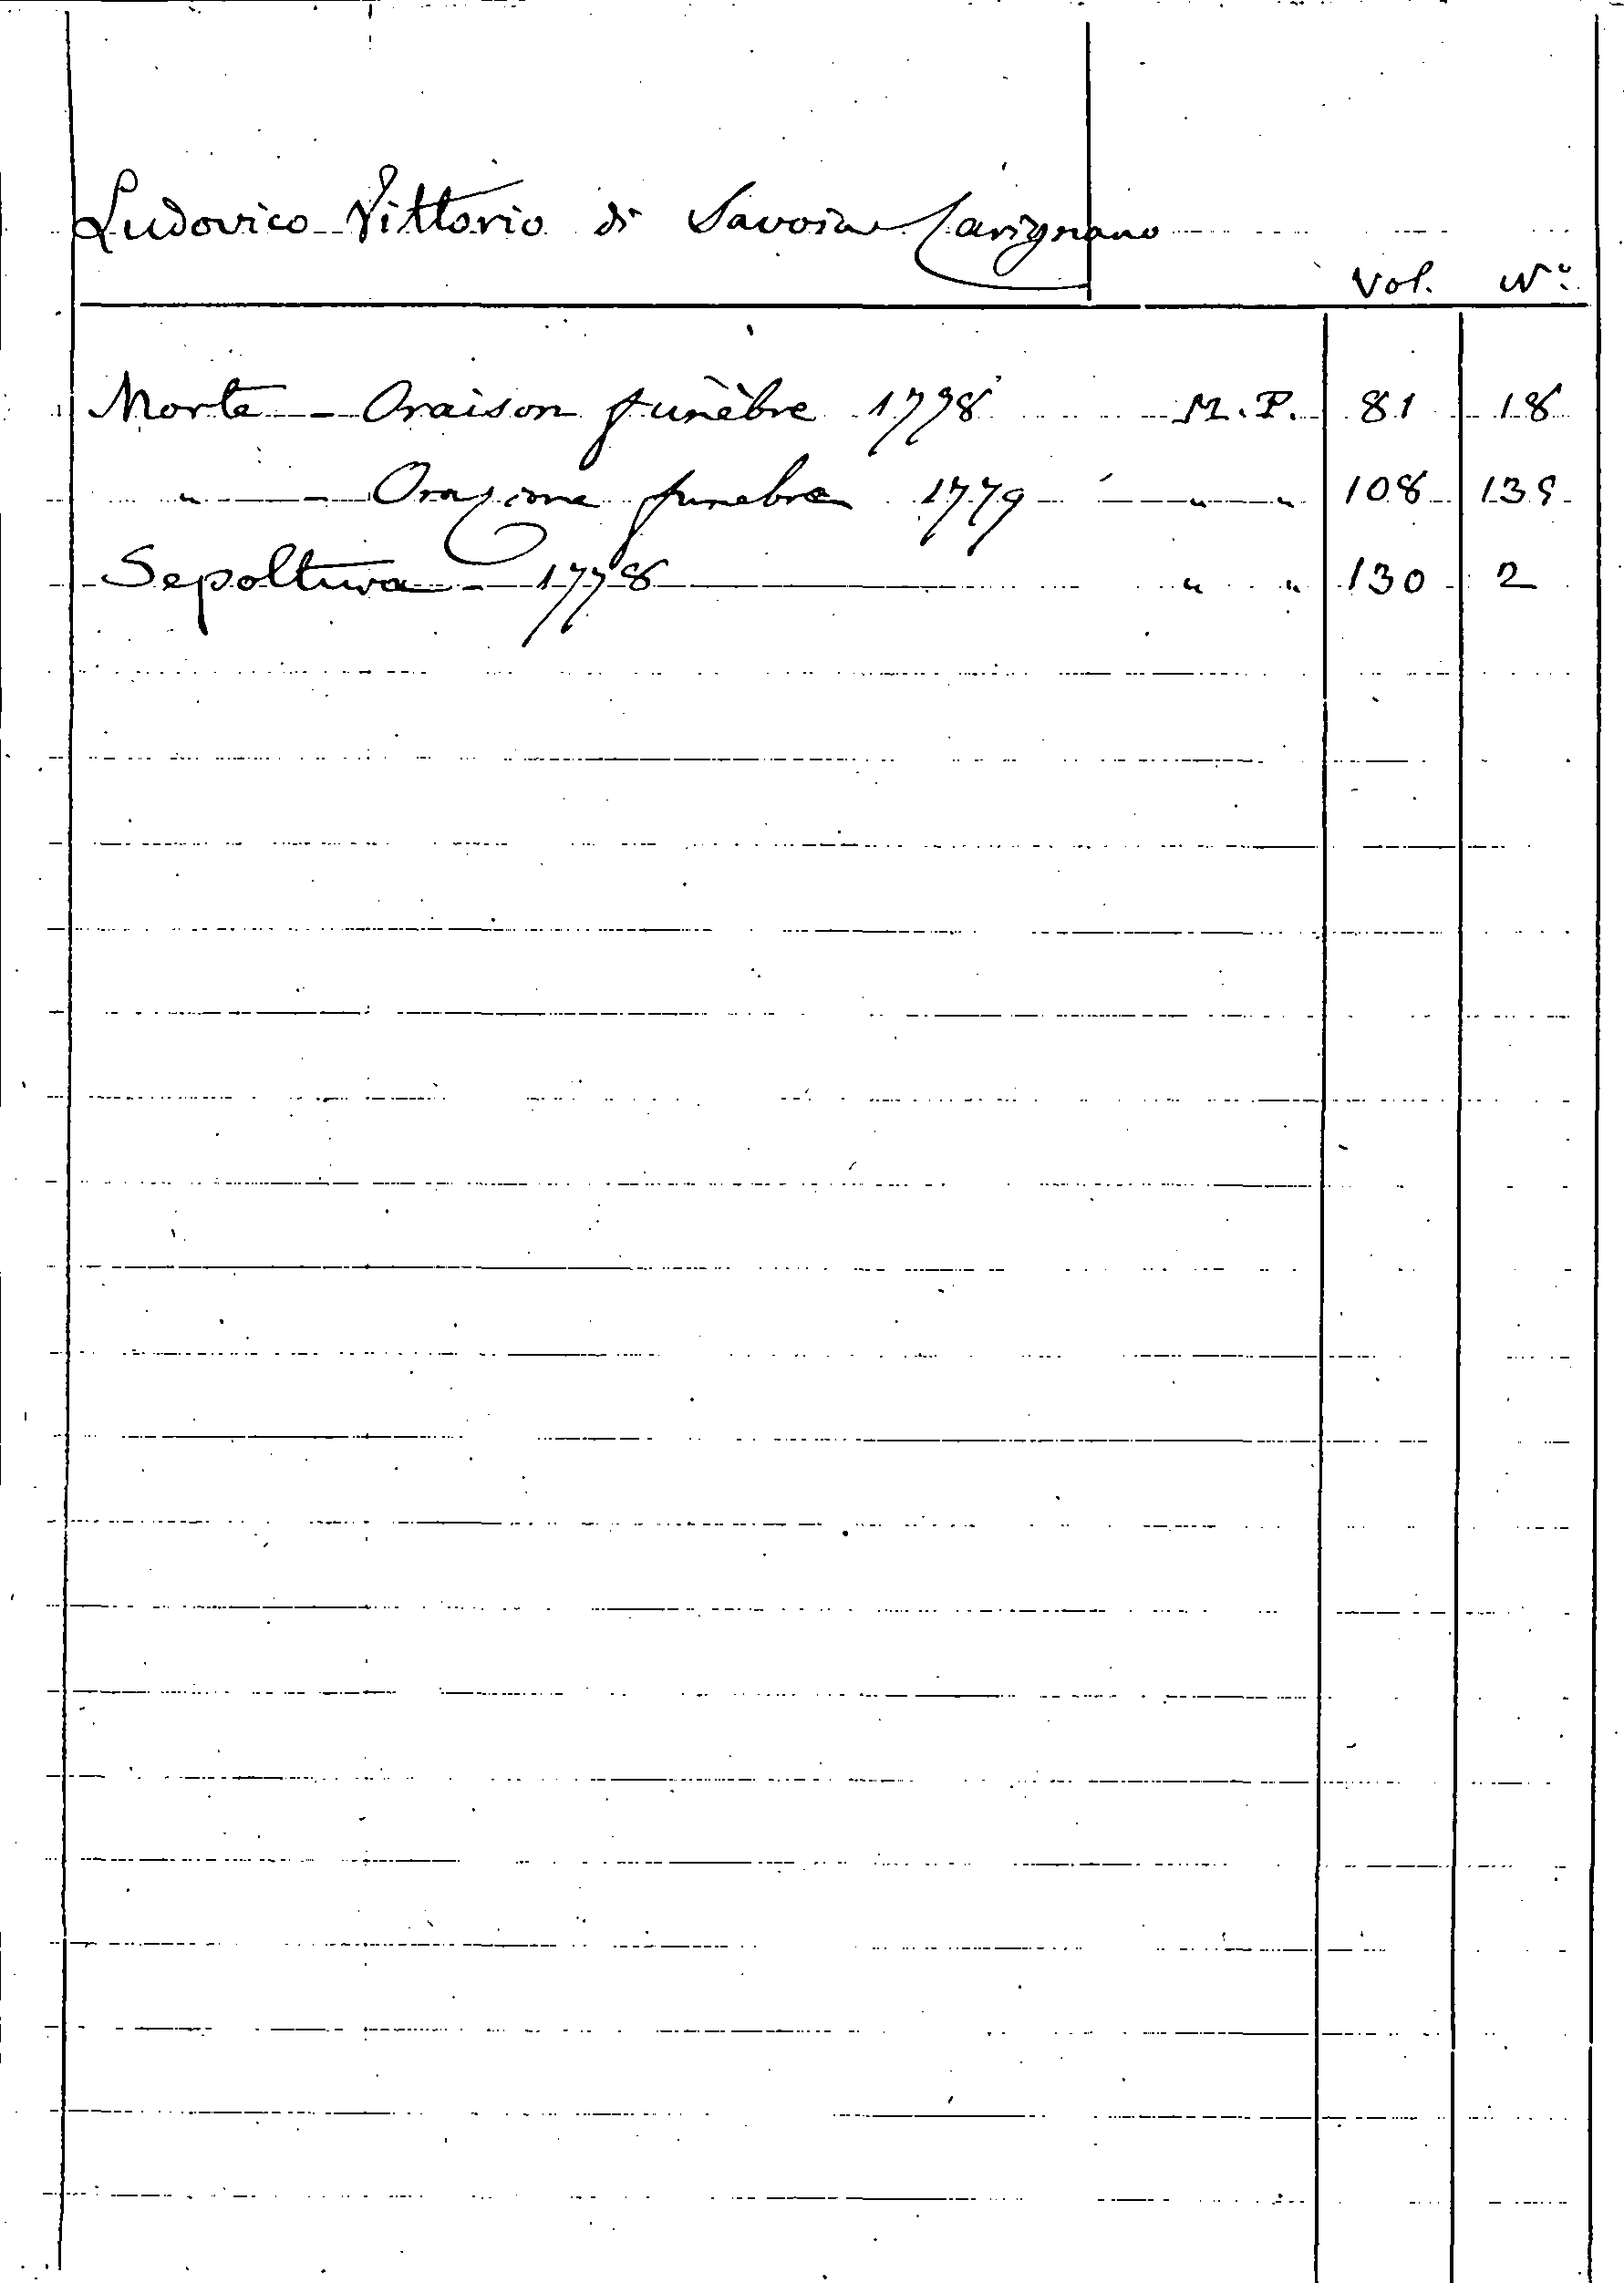 Ludovico Vittorio di Savoia Carignano
Vol. N°
Morte - Oraison funèbre 1778 M. P. 81 18
" - Orazione funebre 1779 - " " 108 139
Sepoltura - 1778 " " 130 2